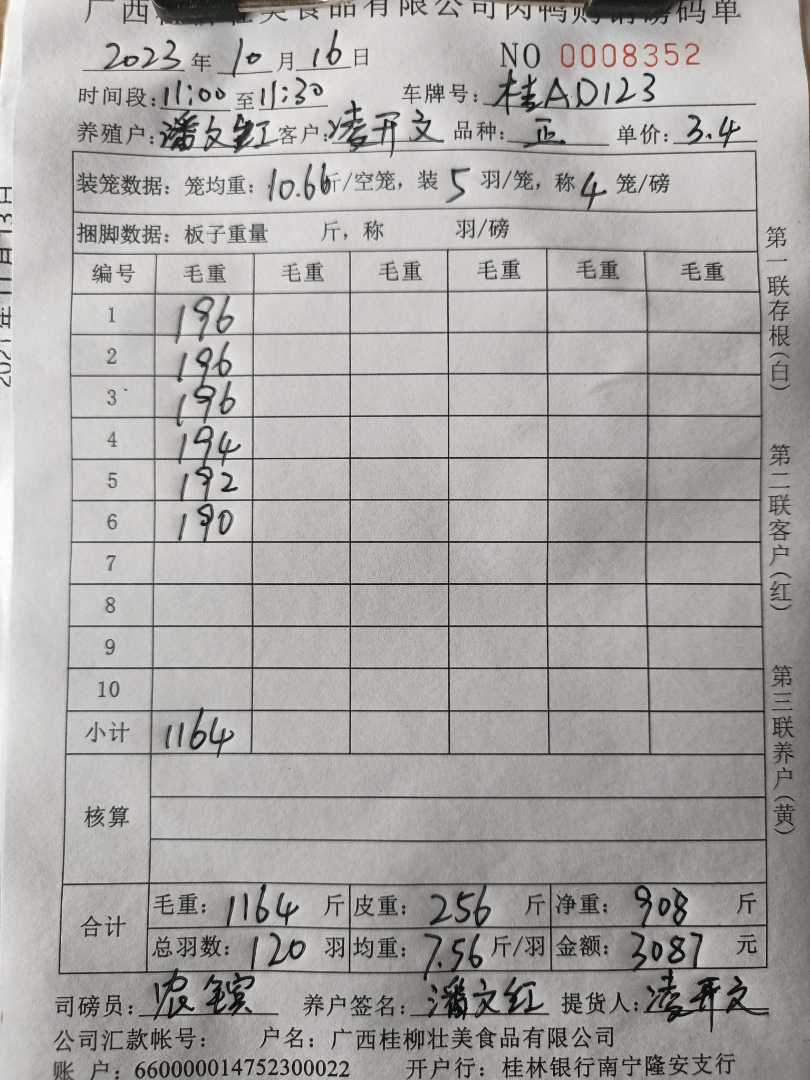 广西桂柳壮美食品有限公司肉鸭购销磅码单
2023年10月16日 NO 0008352
时间段:11:00至11:30 车牌号:桂AD123
养殖户:潘文红 客户:凌开文 品种:正 单价:3.4
装笼数据:笼均重:10.66斤/空笼,装5羽/笼,称4笼/磅
捆脚数据:板子重量 斤,称 羽/磅
编号 毛重 毛重 毛重 毛重 毛重 毛重
1 196
2 196
3 196
4 194
5 192
6 190
7
8
9
10
小计 1164
核算
合计 毛重:1164斤 皮重:256斤 净重:908斤
总羽数:120羽 均重:7.56斤/羽 金额:3087元
司磅员:农 养户签名:潘文红 提货人:凌开文
公司汇款帐号: 户名:广西桂柳壮美食品有限公司
账户:660000014752300022 开户行:桂林银行南宁隆安支行
第一联存根(白)
第二联客户(红)
第三联养户(黄)
2021年11月13日